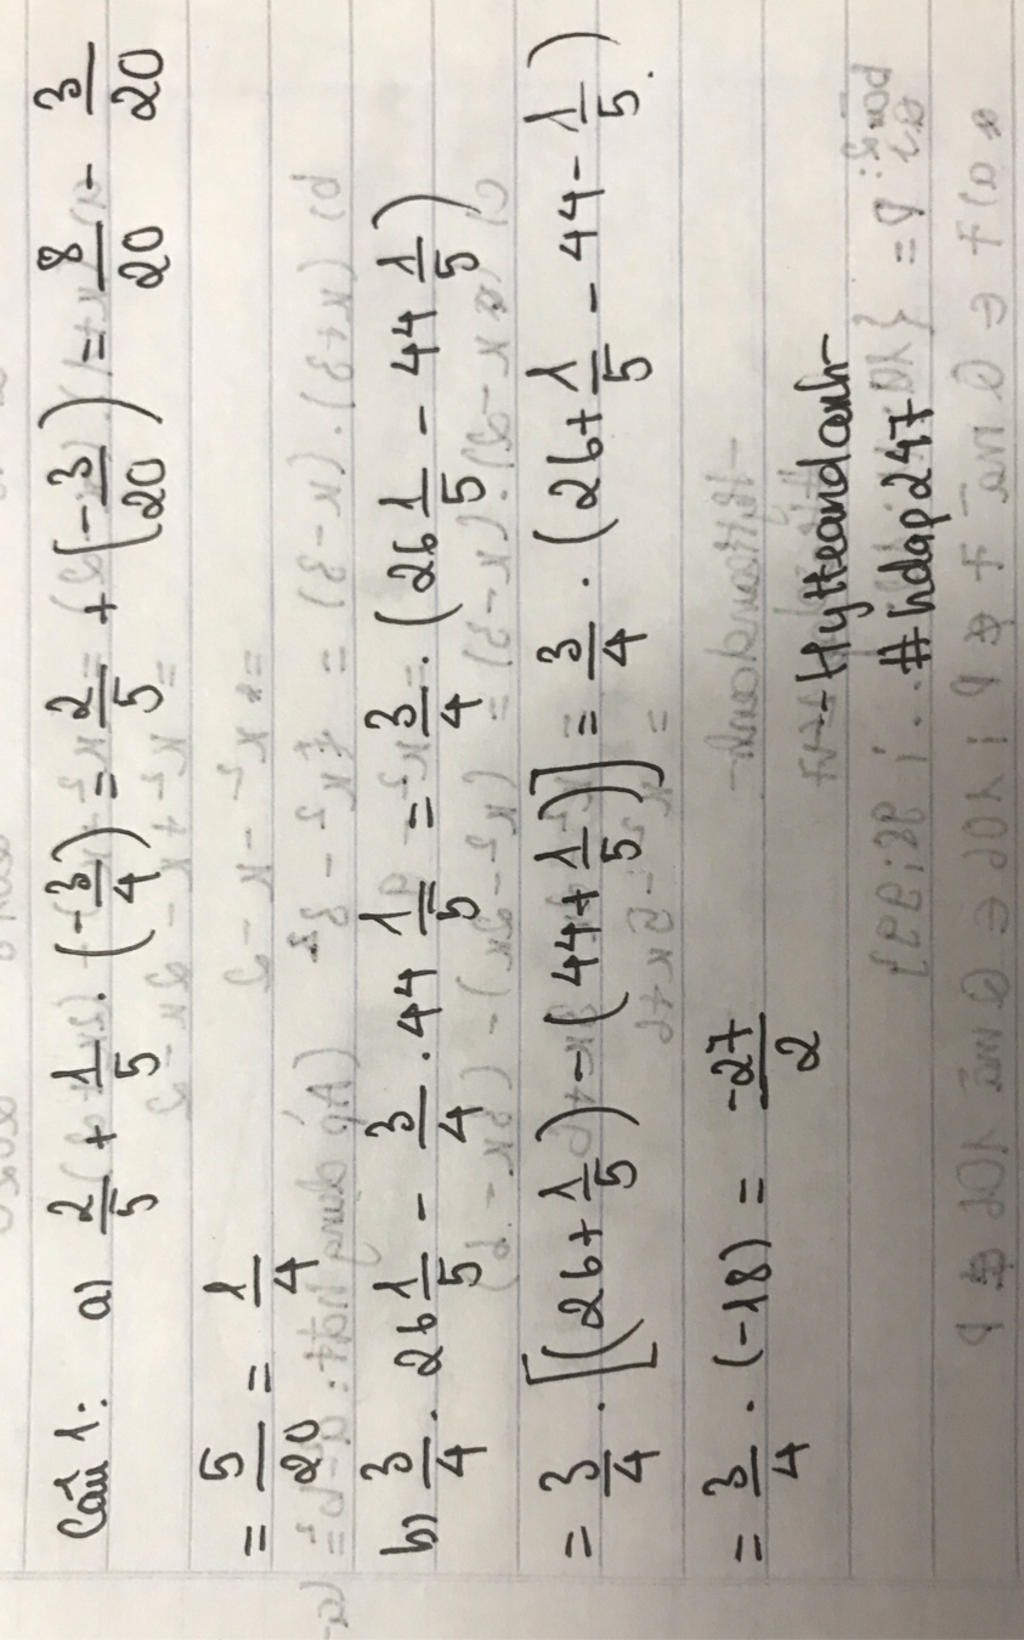 Câu 1: a) 2/5 + 1/5 . (-3/4) = 2/5 + (-3/20) = 8/20 - 3/20
= 5/20 = 1/4
b) 3/4 . 26 1/5 - 3/4 . 44 1/5 = 3/4 . (26 1/5 - 44 1/5)
= 3/4 . [(26 + 1/5) - (44 + 1/5)] = 3/4 . (26 + 1/5 - 44 - 1/5)
= 3/4 . (-18) = -27/2
- Hytteandanh -
# hdap 247